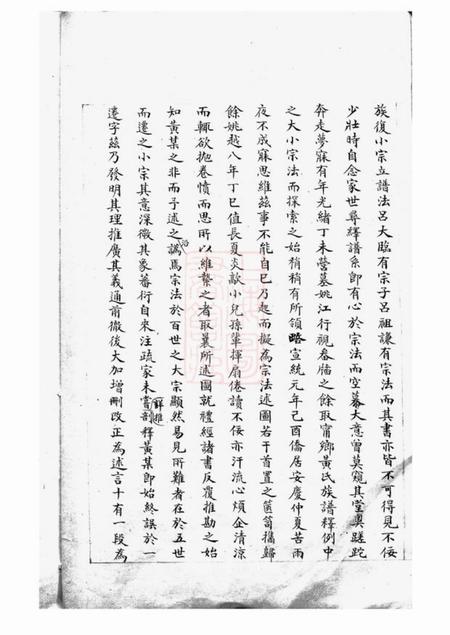 族復小宗立譜法呂大臨有宗子呂祖謙有宗法而其書亦皆不可得見不佞
少壯時自念家世尋釋譜系即有心於宗法而空摹大意曾莫窺其堂奧蹉跎
奔走夢寐有年光緒丁未營墓姚江行視舂牐之餘取甯鄉黃氏族譜釋例中
之大小宗法而探索之始稍稍有所領略宣統元年己酉僑居安慶仲夏苦雨
夜不成寐思維茲事不能自已乃起而擬為宗法述圖若干首置之篋笥攜歸
餘姚越八年丁巳值長夏炎歊小兒孫輩揮扇倦讀不佞亦汗流心煩企清涼
而輒欲拋卷憤而思所以維繫之者取曩所述圖就禮經諸書反覆推勘之始
知黃某之非而予述之亦譌焉宗法於百世之大宗顯然易見所難者在於五世
而遷之小宗其意深微其象蕃衍自來注疏家未嘗詳推剖釋黃某即始終誤於一
遷字茲乃發明其理推廣其義通前徹後大加增刪改正為述言十有一段為